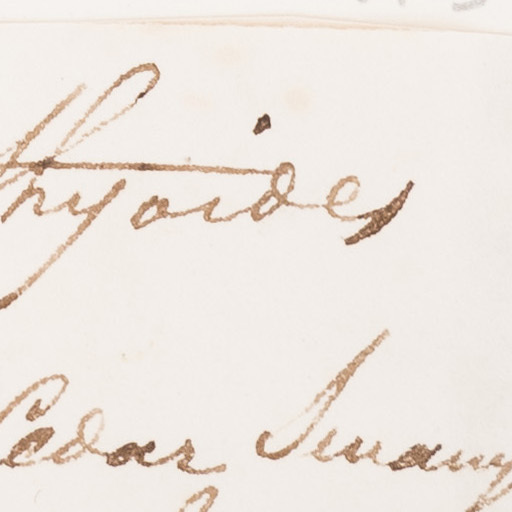 thyoides
Cedar Swamp